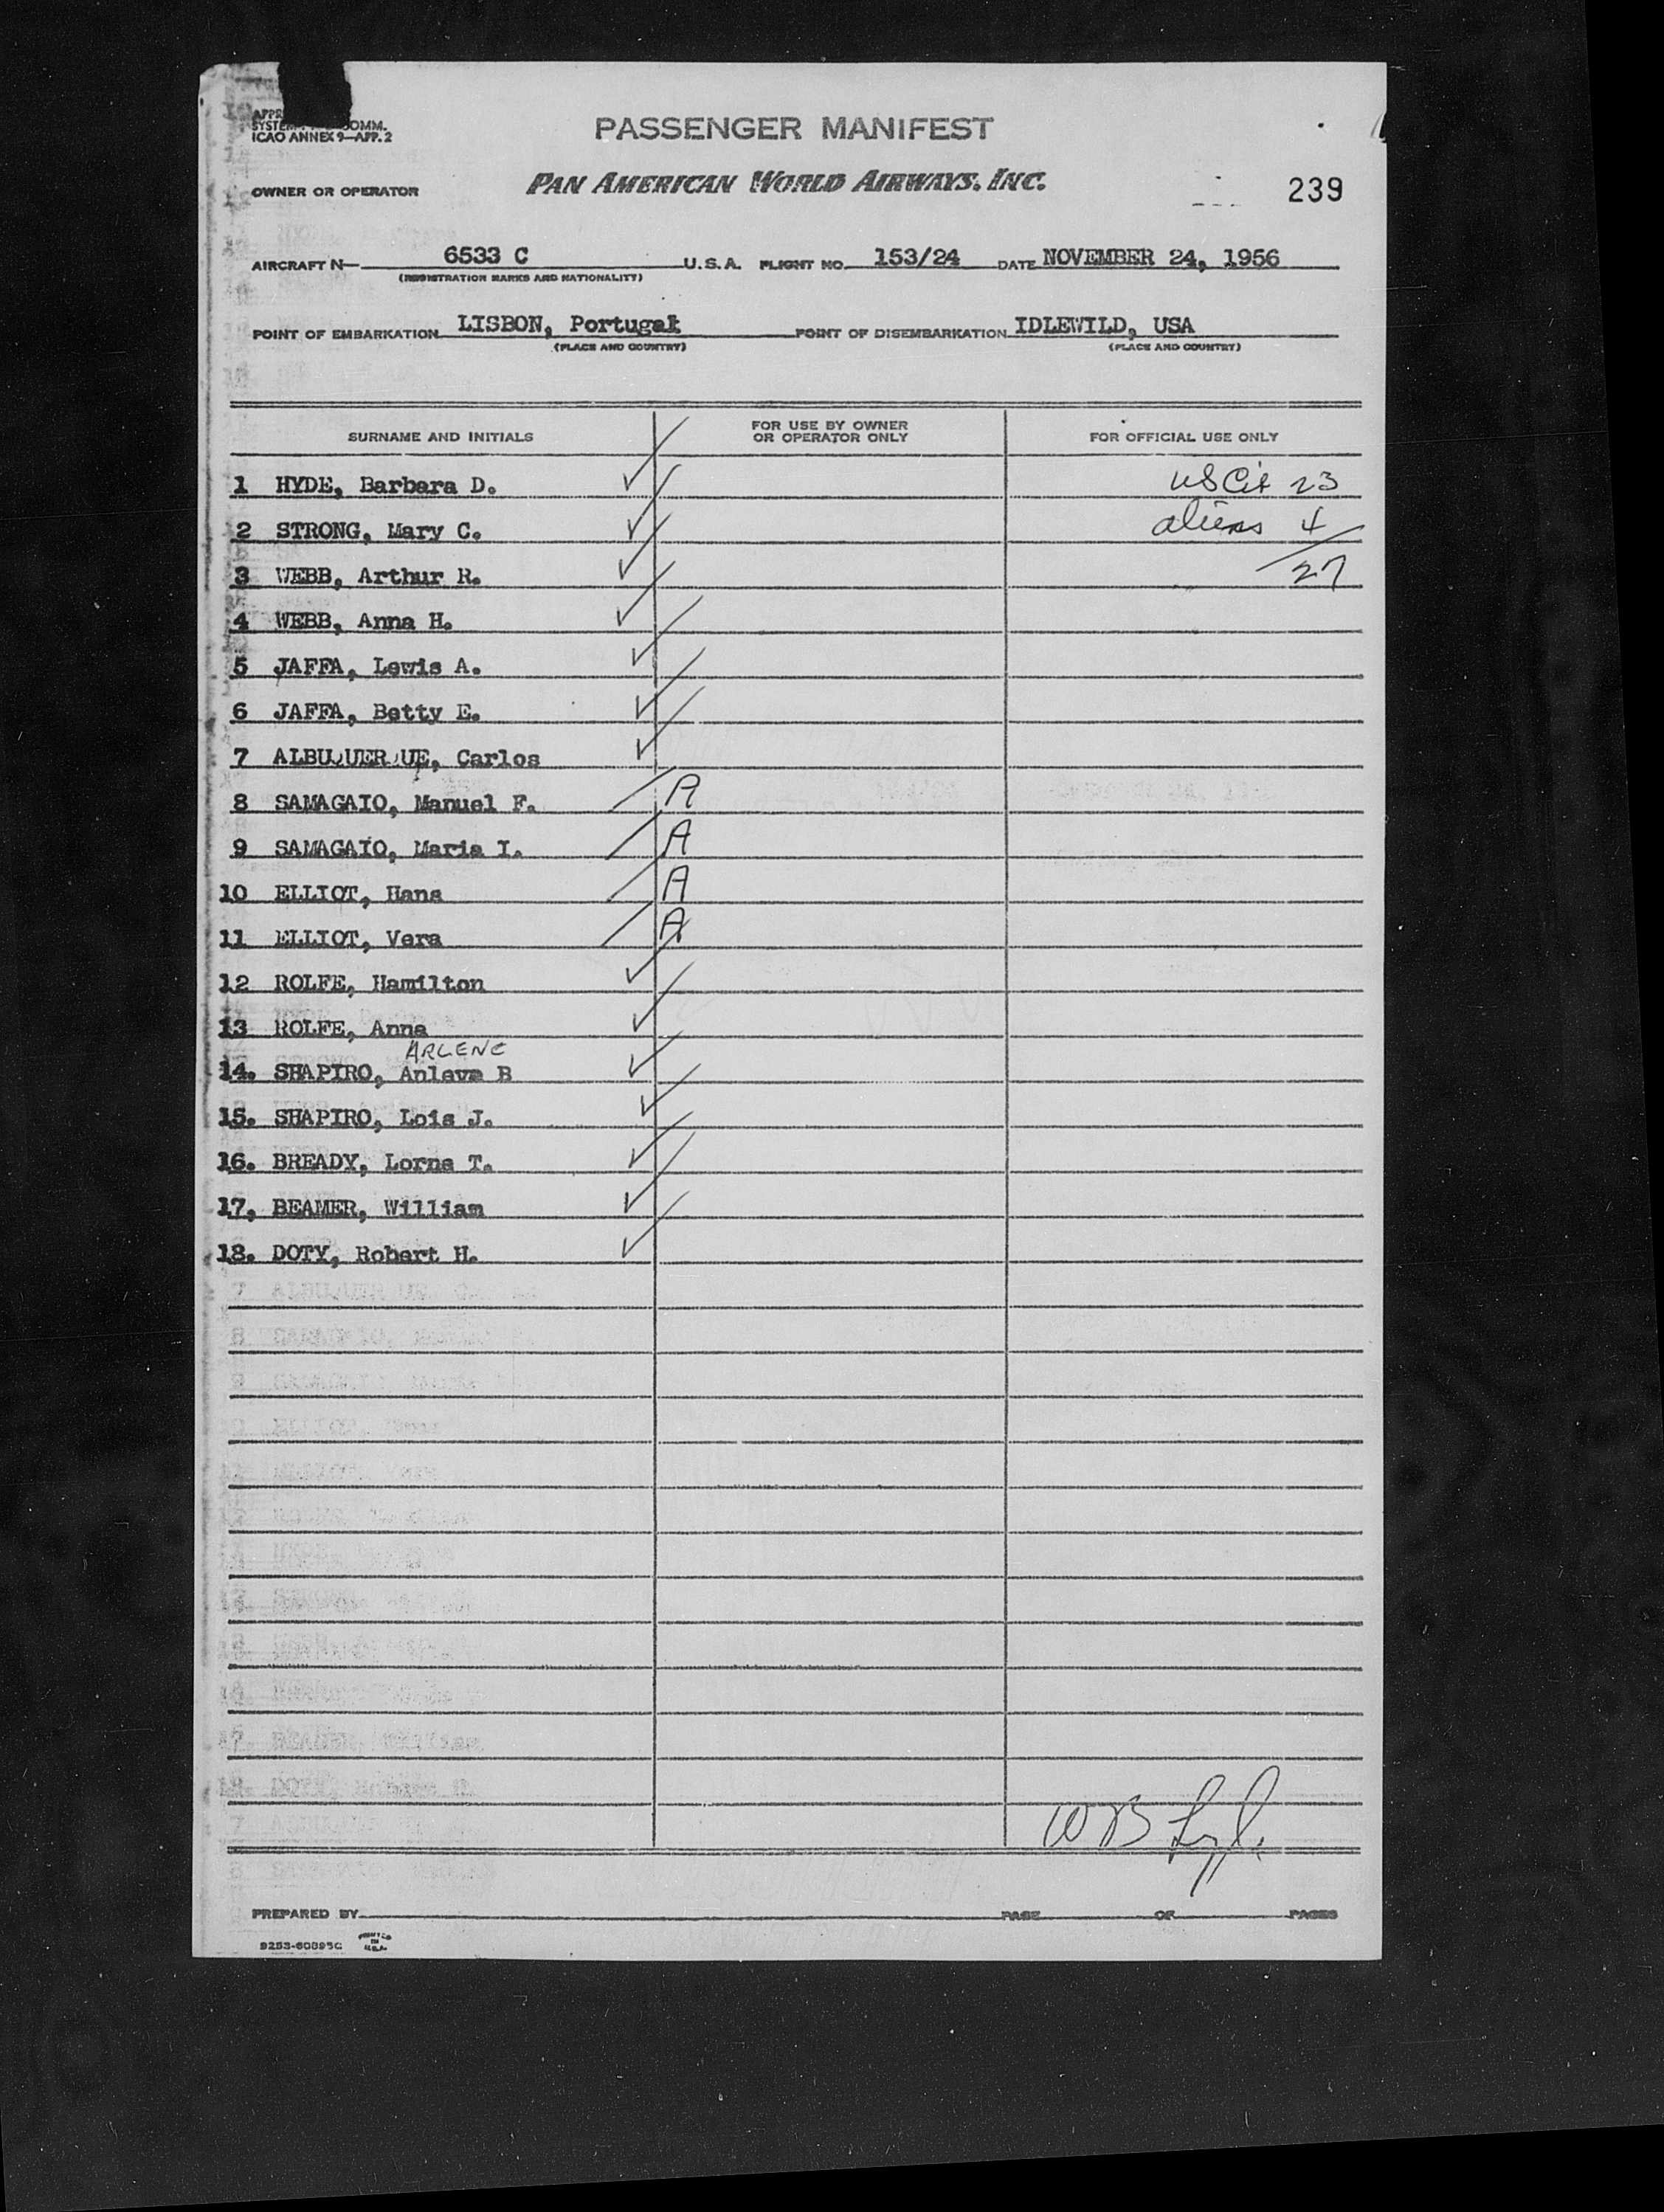 PASSENGER MANIFEST
ICAO ANNEX 9—APP. 2
OWNER OR OPERATOR PAN AMERICAN WORLD AIRWAYS, INC. 239
AIRCRAFT N— 6533 C U.S.A. FLIGHT NO. 153/24 DATE NOVEMBER 24, 1956
(REGISTRATION MARKS AND NATIONALITY)
POINT OF EMBARKATION LISBON, Portugal POINT OF DISEMBARKATION IDLEWILD, USA
(PLACE AND COUNTRY) (PLACE AND COUNTRY)
SURNAME AND INITIALS FOR USE BY OWNER OR OPERATOR ONLY FOR OFFICIAL USE ONLY
1 HYDE, Barbara D. US Cit 23
2 STRONG, Mary C. aliens 4
3 WEBB, Arthur R. 27
4 WEBB, Anna H.
5 JAFFA, Lewis A.
6 JAFFA, Betty E.
7 ALBUQUERQUE, Carlos
8 SAMAGAIO, Manuel F. A
9 SAMAGAIO, Maria I. A
10 ELLIOT, Hans A
11 ELLIOT, Vera A
12 ROLFE, Hamilton
13 ROLFE, Anna
ARLENE
14. SHAPIRO, Anleve B
15. SHAPIRO, Lois J.
16. BREADY, Lorna T.
17, BEAMER, William
18. DOTY, Robert H.
PREPARED BY PAGE OF PAGES
9253-60895C PRINTED IN U.S.A.